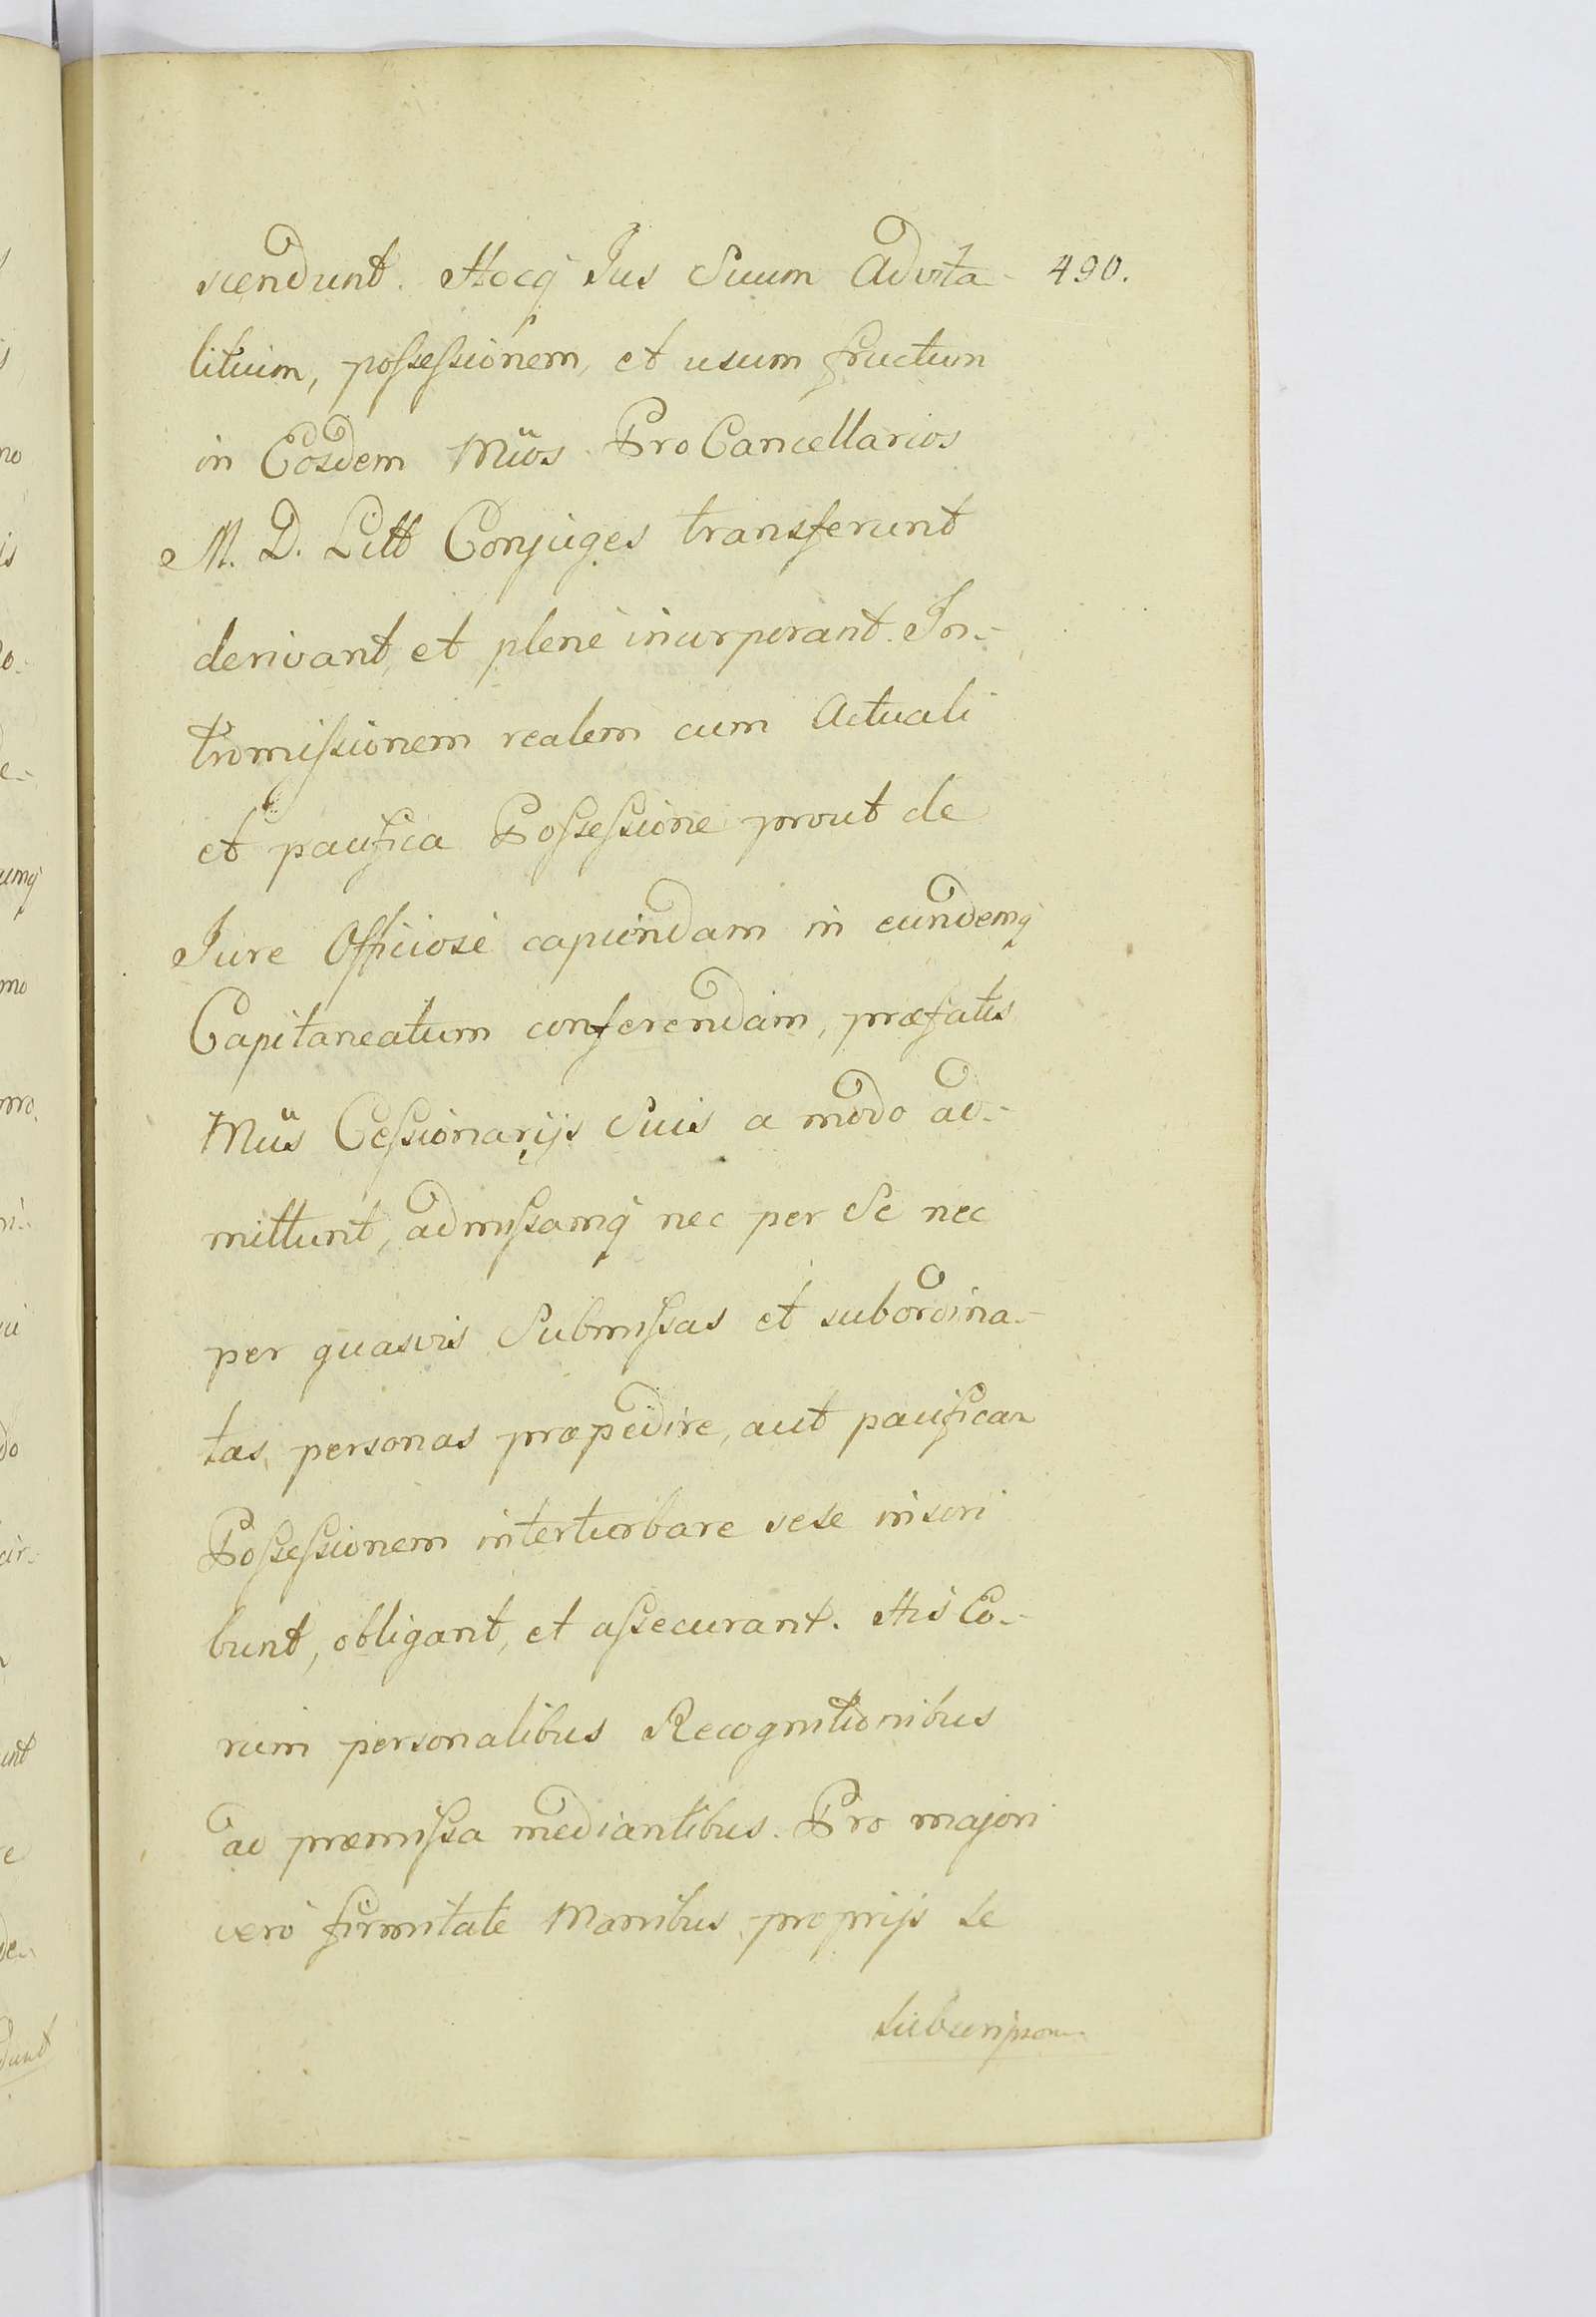 scendunt. Hocq̃ Jus Suum Advita- 490.
litium, possessionem, et usum fructum
in Eosdem Mũos Pro Cancellarios
M. D. Litt Conjuges transferunt
derivant, et plene incorporant. In-
tromissionem realem cum Actuali
et pacifica Possessione prout de
Jure Officiosè capiendam in eundemq̃
Capitaneatum conferendam, præfatis
Mũs Cessionarijs Suis a modo ad-
mittunt, admissamq̃ nec per Se nec
per quasvis Submissas et subordina-
tas personas præpedire, aut pacificam
Possessionem interturbare sese inscri
bunt, obligant, et assecurant. His Eo-
rum personalibus Recognitionibus
ad præmissa mediantibus. Pro majori
vero firmitate Manibus proprijs se